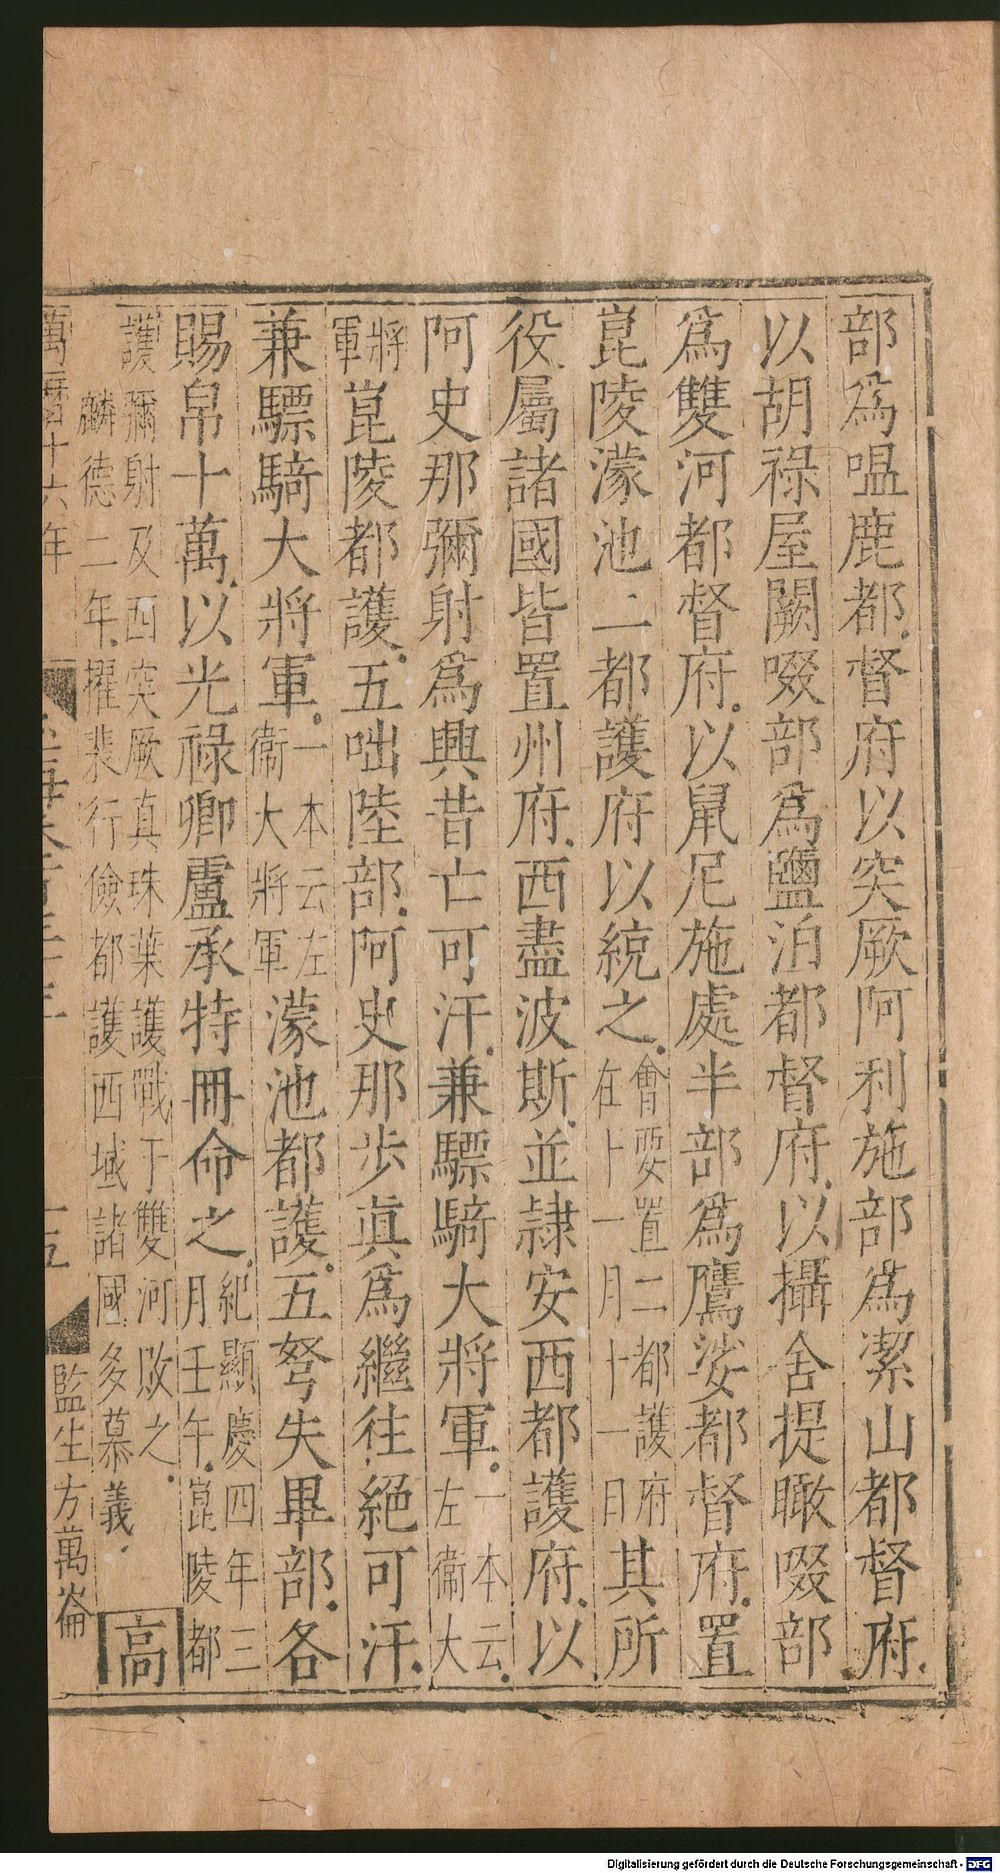 部爲嗢鹿都督府以突厥阿利施部爲潔山都督府
以胡祿屋闕啜部爲鹽泊都督府以攝舍提暾啜部
爲雙河都督府以鼠尼施處半部爲鷹娑都督府置
崑陵濛池二都護府以統之會要置二都護府在十一月十一日其所
役屬諸國皆置州府西盡波斯並隷安西都護府以
阿史那彌射爲興昔亡可汗兼驃騎大將軍一本云左衞大
將軍崑陵都護五咄陸部阿史那步真爲繼往絕可汗
兼驃騎大將軍一本云左衞大將軍濛池都護五弩失畢部各
賜帛十萬以光祿卿盧承特冊命之紀顯慶四年三月壬午崑陵都
護彌射及西突厥真珠葉護戰于雙河敗之
麟德二年擢裴行儉都護西域諸國多慕義
高
萬曆十六年
十五
監生方萬崙
Digitalisierung gefördert durch die Deutsche Forschungsgemeinschaft - DFG